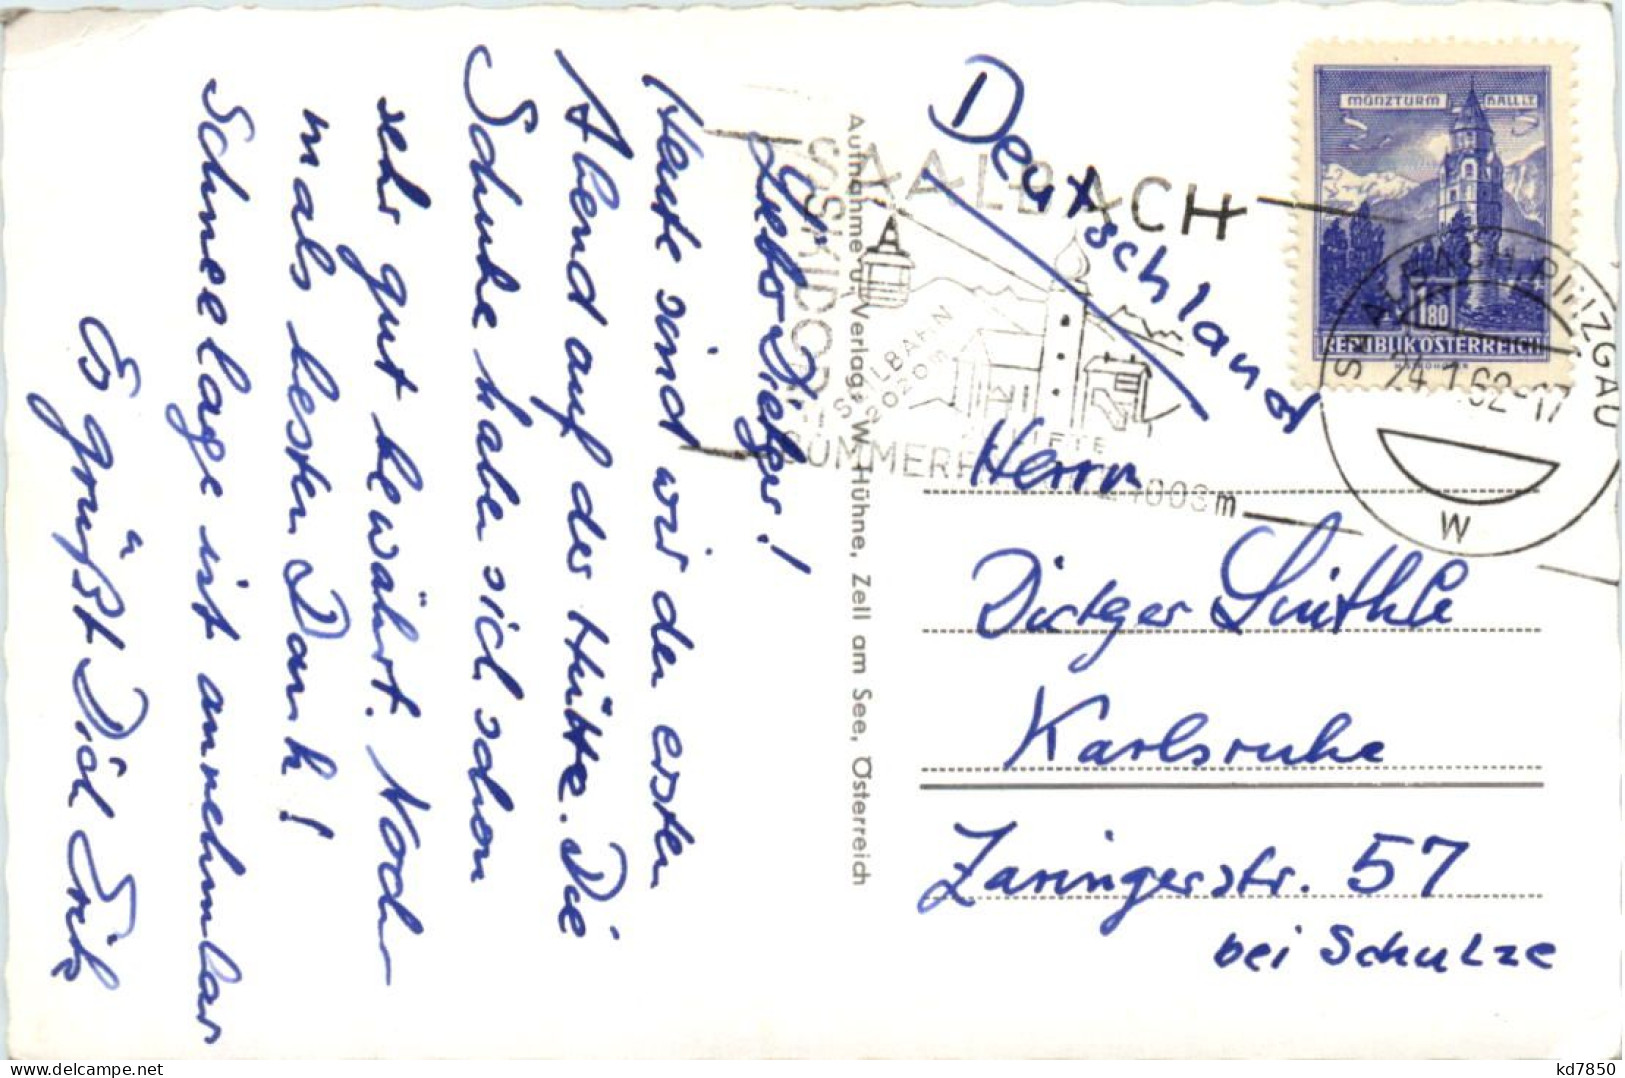 Lieber Dietger!
Heute sind wir den ersten
Abend auf der Hütte. Die
Schuhe habe sich schon
sehr gut bewährt. Noch
mals besten Dank!
Schneelage ist annehmbar
Es grüßt Dich Erich
Aufnahme u. Verlag: W. Hühne, Zell am See, Österreich
Deutschland
SAALBACH
SKIDORF
SEILBAHN
2020m
LIFTE
SOMMERFR
1003m
MÜNZTURM HALL I.T.
1.80
REPUBLIK ÖSTERREICH
SAALBACH, PINZGAU
24.1.62-17
W
Herrn
Dietger
Karlsruhe
Zäringerstr. 57
bei Schulze
kd7850